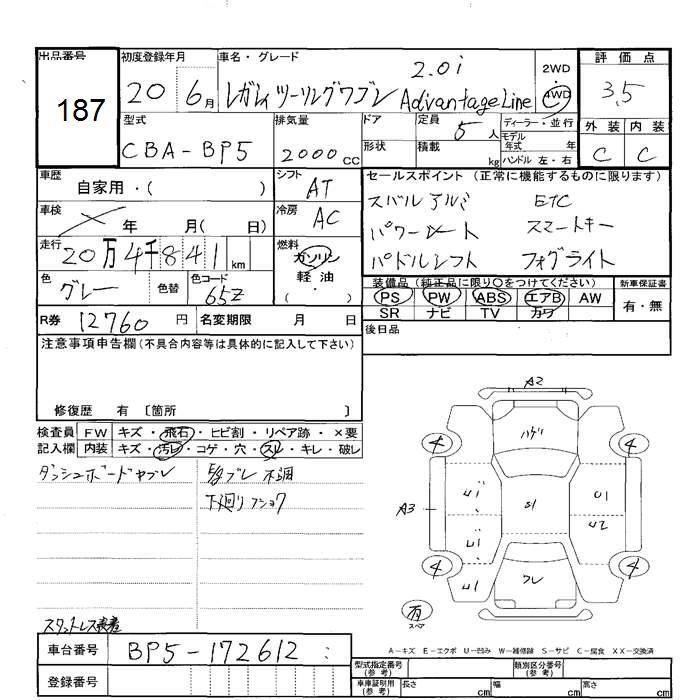 出品番号 初度登録年月 車名・グレード 評価点
187 20 6月 レガシィツーリングワゴン 2.0i AdvantageLine 2WD 4WD 3.5
型式 排気量 ドア 定員 ディーラー・並行 外装 内装
CBA-BP5 2000cc 形状 5人 積載 kg モデル年式 年 ハンドル 左・右 C C
車歴 自家用・( ) シフト AT セールスポイント (正常に機能するものに限ります)
車検 × 年 月( 日) 冷房 AC スバル アルミ ETC
パワーシート スマートキー
走行 20万4千841km 燃料 ガソリン 軽油 ( ・ ) パドルシフト フォグライト
色 グレー 色替 色コード 65Z 装備品 (純正品に限り○をつけてください) 新車保証書
PS PW ABS エアB AW 有・無
SR ナビ TV カワ
R券 12760円 名変期限 月 日 後日品
注意事項申告欄(不具合内容等は具体的に記入して下さい)
修復歴 有 [箇所 ]
検査員 FW キズ・飛石・ヒビ割・リペア跡・×要
記入欄 内装 キズ・汚レ・コゲ・穴・スレ・キレ・破レ
ダッシュボードヤブレ
下廻リフショク
A2
ハゲ
4 4
U1 S1 U1
A3
U1 U2
4 4
U1
有 スペア
A-キズ E-エクボ U-凹み W-補修跡 S-サビ C-腐食 XX-交換済
車台番号 BP5-172612
登録番号
型式指定番号(参考) 類別区分番号(参考)
車庫証明用(参考) 長さ cm 幅 cm 高さ cm